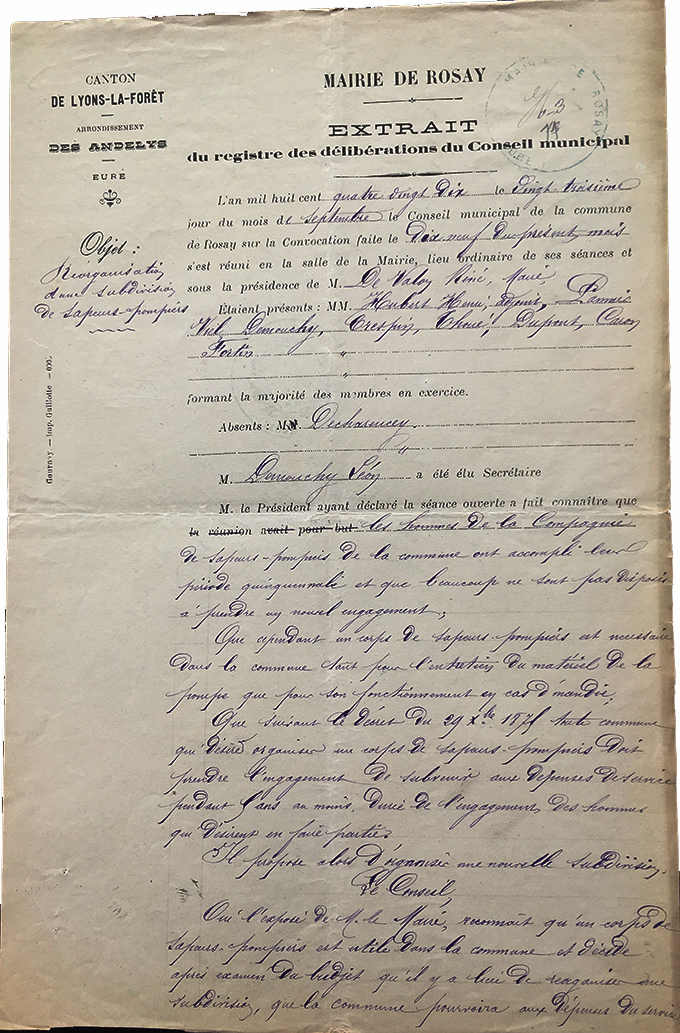 CANTON
DE LYONS-LA-FORÊT
ARRONDISSEMENT
DES ANDELYS
EURE
Objet :
Réorganisation
d'une subdivision
de sapeurs-pompiers
Gournay. — Imp. Guillotte — 600.
MAIRIE DE ROSAY
MAIRIE DE ROSAY
EXTRAIT
du registre des délibérations du Conseil municipal
L'an mil huit cent quatre vingt dix le vingt troisième
jour du mois de septembre le Conseil municipal de la commune
de Rosay sur la Convocation faite le Dix neuf du présent mois
s'est réuni en la salle de la Mairie, lieu ordinaire de ses séances et
sous la présidence de M. De Valon Réné, Maire,
Étaient présents : MM. Hubert Henri, adjoint,
Viel Demouchy, Crespin, Thoué, Dupont, Caron
Fortin "
"
formant la majorité des membres en exercice.
Absents : MM. Decharencey
"
M. Demouchy Léon a été élu Secrétaire
M. le Président ayant déclaré la séance ouverte a fait connaître que
la réunion avait pour but les hommes de la Compagnie
de sapeurs-pompiers de la commune ont accompli leur
période quinquennale et que beaucoup ne sont pas disposés
à prendre un nouvel engagement ;
Que cependant un corps de sapeurs-pompiers est nécessaire
dans la commune tant pour l'entretien du matériel de la
pompe que pour son fonctionnement en cas d'incendie,
Que suivant le décret du 29 Xbre 1875 toute commune
qui désire organiser un corps de sapeurs-pompiers doit
prendre l'engagement de subvenir aux dépenses de service
pendant 5 ans au moins, durée de l'engagement des hommes
qui désirent en faire partie.
Il propose alors d'organiser une nouvelle subdivision.
Le Conseil,
Ouï l'exposé de M. le Maire, reconnaît qu'un corps de
sapeurs-pompiers est utile dans la commune et décide
après examen du budjet qu'il y a lieu de réorganiser une
subdivision, que la commune pourvoira aux dépenses du service